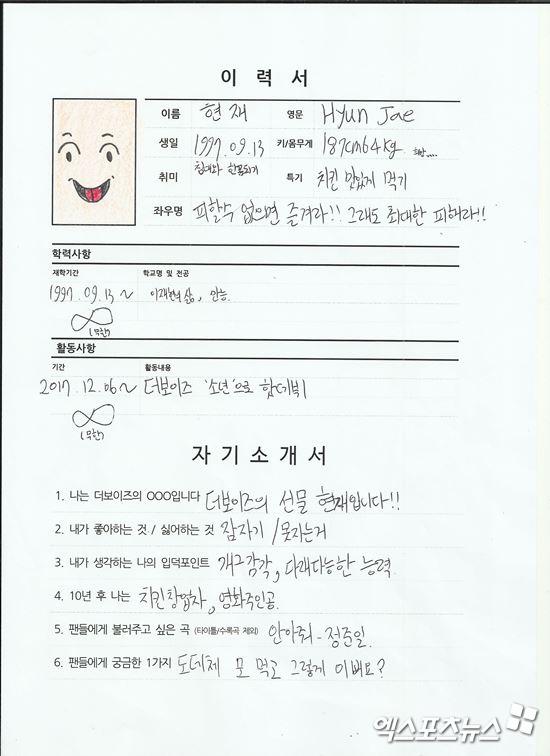 이 력 서
이름 현재 영문 Hyun Jae
생일 1997.09.13 키/몸무게 187cm 64kg
취미 침대와 한몸되기 특기 치킨 맛있게 먹기
좌우명 피할수 없으면 즐겨라!! 그래도 최대한 피해라!!
학력사항
재학기간 학교명 및 전공
1997.09.13 ~ 이재현의 삶, 인생.
∞
(무한)
활동사항
기간 활동내용
2017.12.06 ~ 더보이즈 '소년'으로 합데뷔
∞
(무한)
자 기 소 개 서
1. 나는 더보이즈의 OOO입니다 더보이즈의 선물 현재입니다!!
2. 내가 좋아하는 것 / 싫어하는 것 잠자기 / 못자는거
3. 내가 생각하는 나의 입덕포인트 개그감각, 다재다능한 능력
4. 10년 후 나는 치킨창업자, 영화주인공.
5. 팬들에게 불러주고 싶은 곡 (타이틀/수록곡 제외) 안아줘 - 정준일.
6. 팬들에게 궁금한 1가지 도데체 모 먹고 그렇게 이뻐요?
엑스포츠뉴스